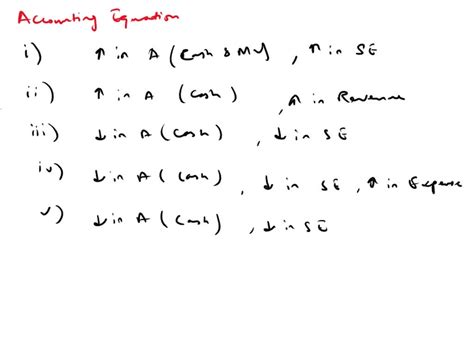 Accounting Equation
i) ↑ in A (Cash & MV), ↑ in SE
ii) ↑ in A (Cash), ↑ in Revenue
iii) ↓ in A (Cash), ↓ in SE
iv) ↓ in A (Cash), ↓ in SE, ↑ in Expense
v) ↓ in A (Cash), ↓ in SE